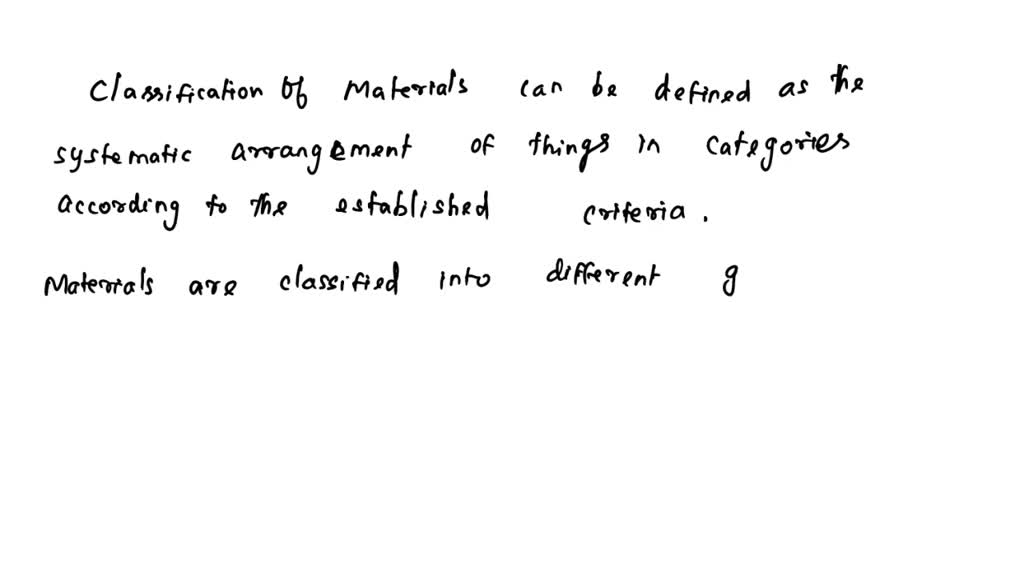 Classification of Materials can be defined as the
systematic arrangement of things in categories
according to the established criteria.
Materials are classified into different g